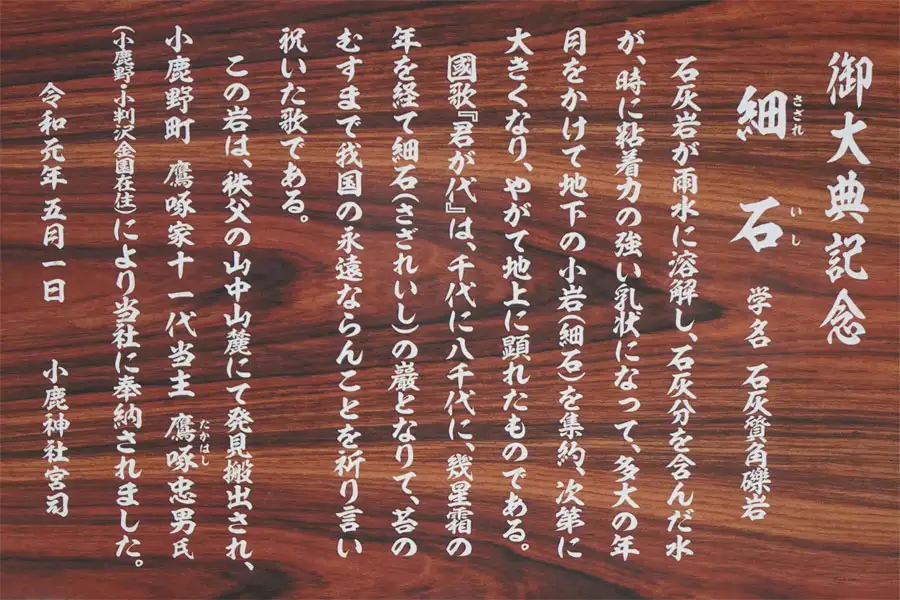 御大典記念
細石 学名 石灰質角礫岩
さざれ いし
石灰岩が雨水に溶解し、石灰分を含んだ水
が、時に粘着力の強い乳状になって、多大の年
月をかけて地下の小岩(細石)を集約、次第に
大きくなり、やがて地上に顕れたものである。
國歌『君が代』は、千代に八千代に、幾星霜の
年を経て細石(さざれいし)の巌となりて、苔の
むすまで我国の永遠ならんことを祈り言い
祝いた歌である。
この岩は、秩父の山中山麓にて発見搬出され、
小鹿野町 鷹啄家十一代当主 鷹啄忠男氏
たかはし
(小鹿野・小判沢全国在住)により当社に奉納されました。
令和元年五月一日 小鹿神社宮司